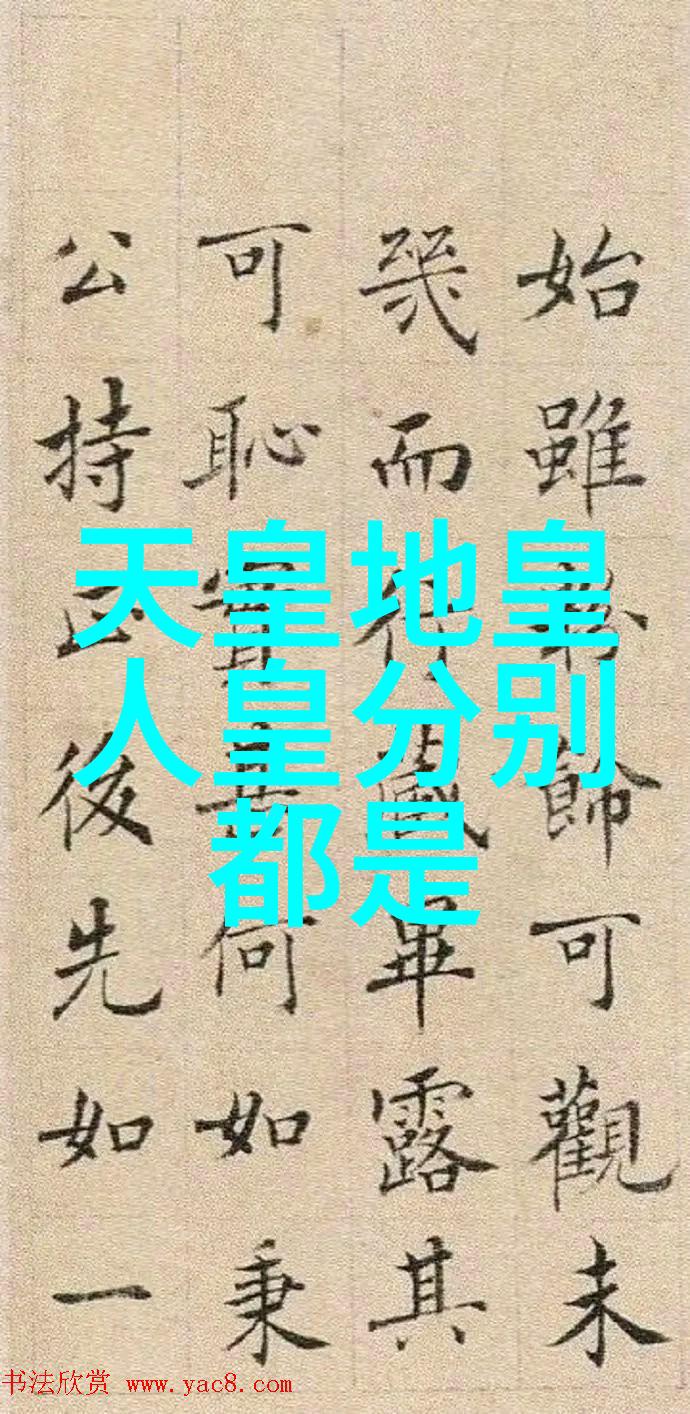 天皇地皇
人皇分别
都是
始雖矜飾可觀未
幾而行藏畢露其
可恥實甚何如秉
公持正後先如一
书法欣赏 www.yac8.com